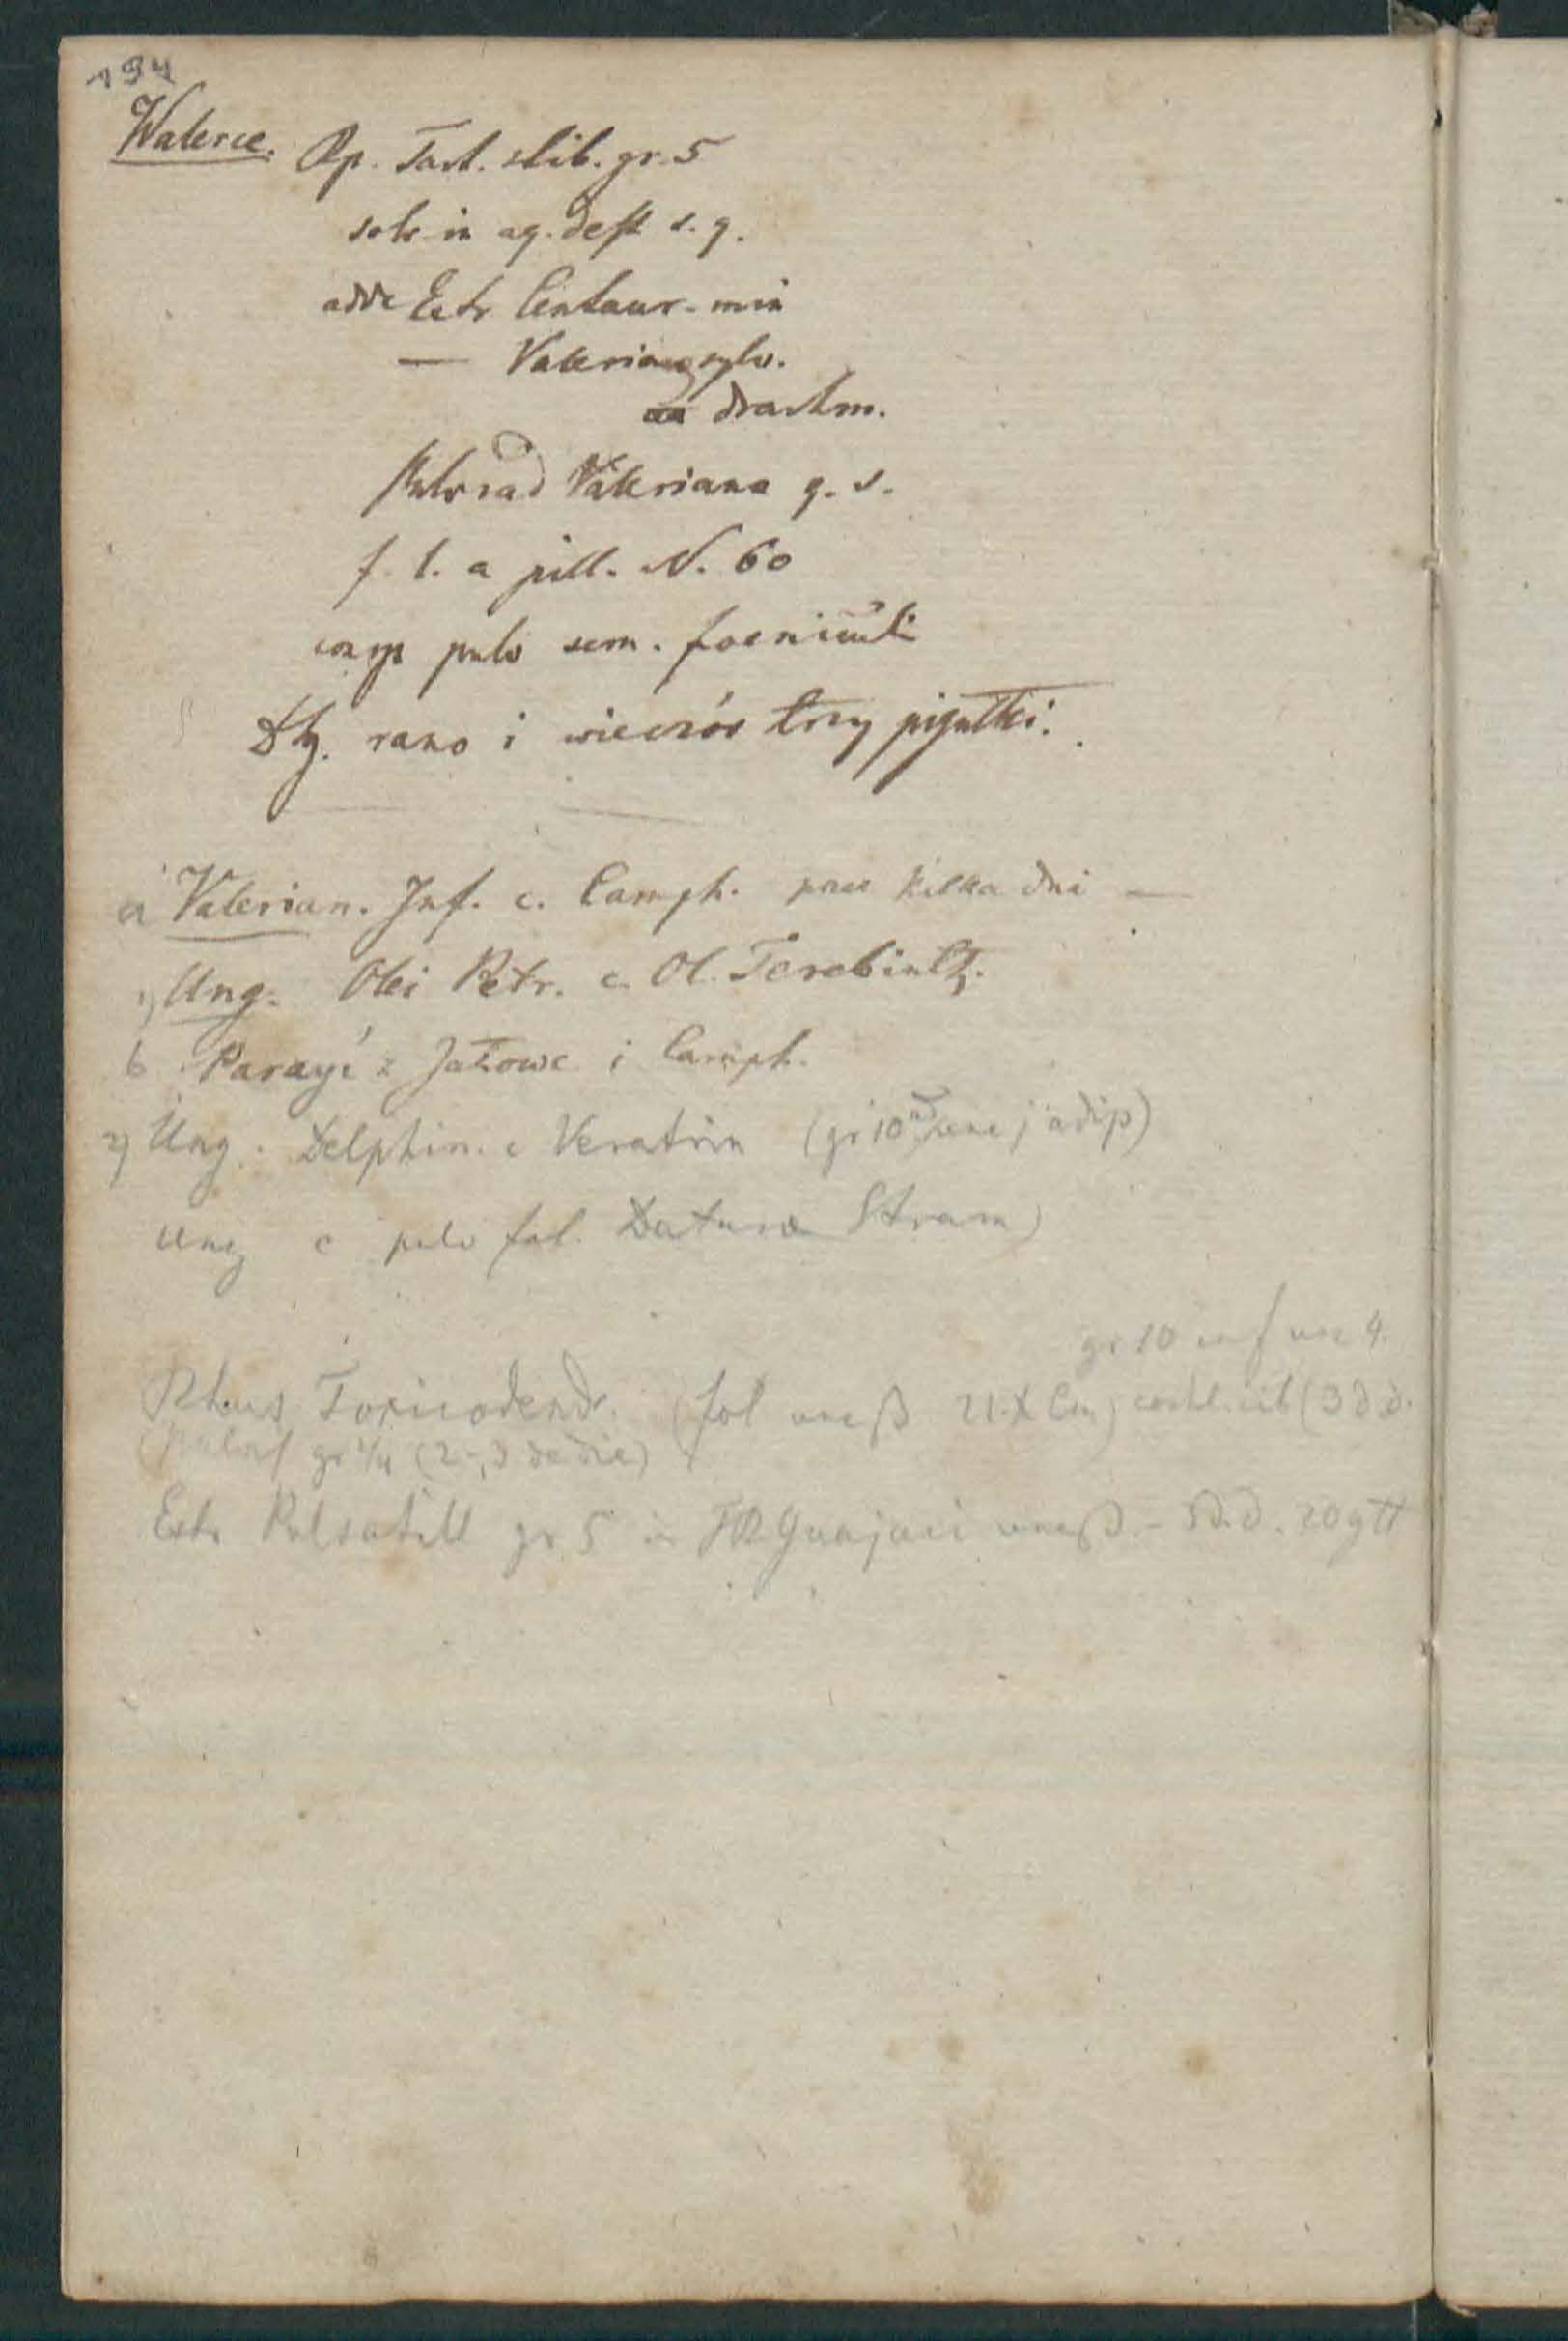 194
Walerce. Rp. Tart. stib. gr. 5
solv in aq. dest s. q.
adde Extr Centaur. min
— Valerianæ sylv.
aa drachm.
Pulv rad Valeriana q. s.
f. l. a pill. N. 60
consp pulv sem. foeniculi
DS. rano i wieczór trzy pigułki.
a Valerian. Inf. c. Camph. przez kilka dni —
1) Ung. Olei Petr. c. Ol. Terebinth.
b Parayi z Jałowc i Camph.
2) Ung. Delphin. c Veratrin (gr 10 unc j adip)
Ung c pulv fol. Daturæ Stram)
gr 10 unc 4.
Rhus Toxicodendr. (fol cochl. cib (3 d d.
gr 1/4 (2-3 de die)
Extr Pulsatill gr 5 in Guajaci 3 d. d. 20 gtt